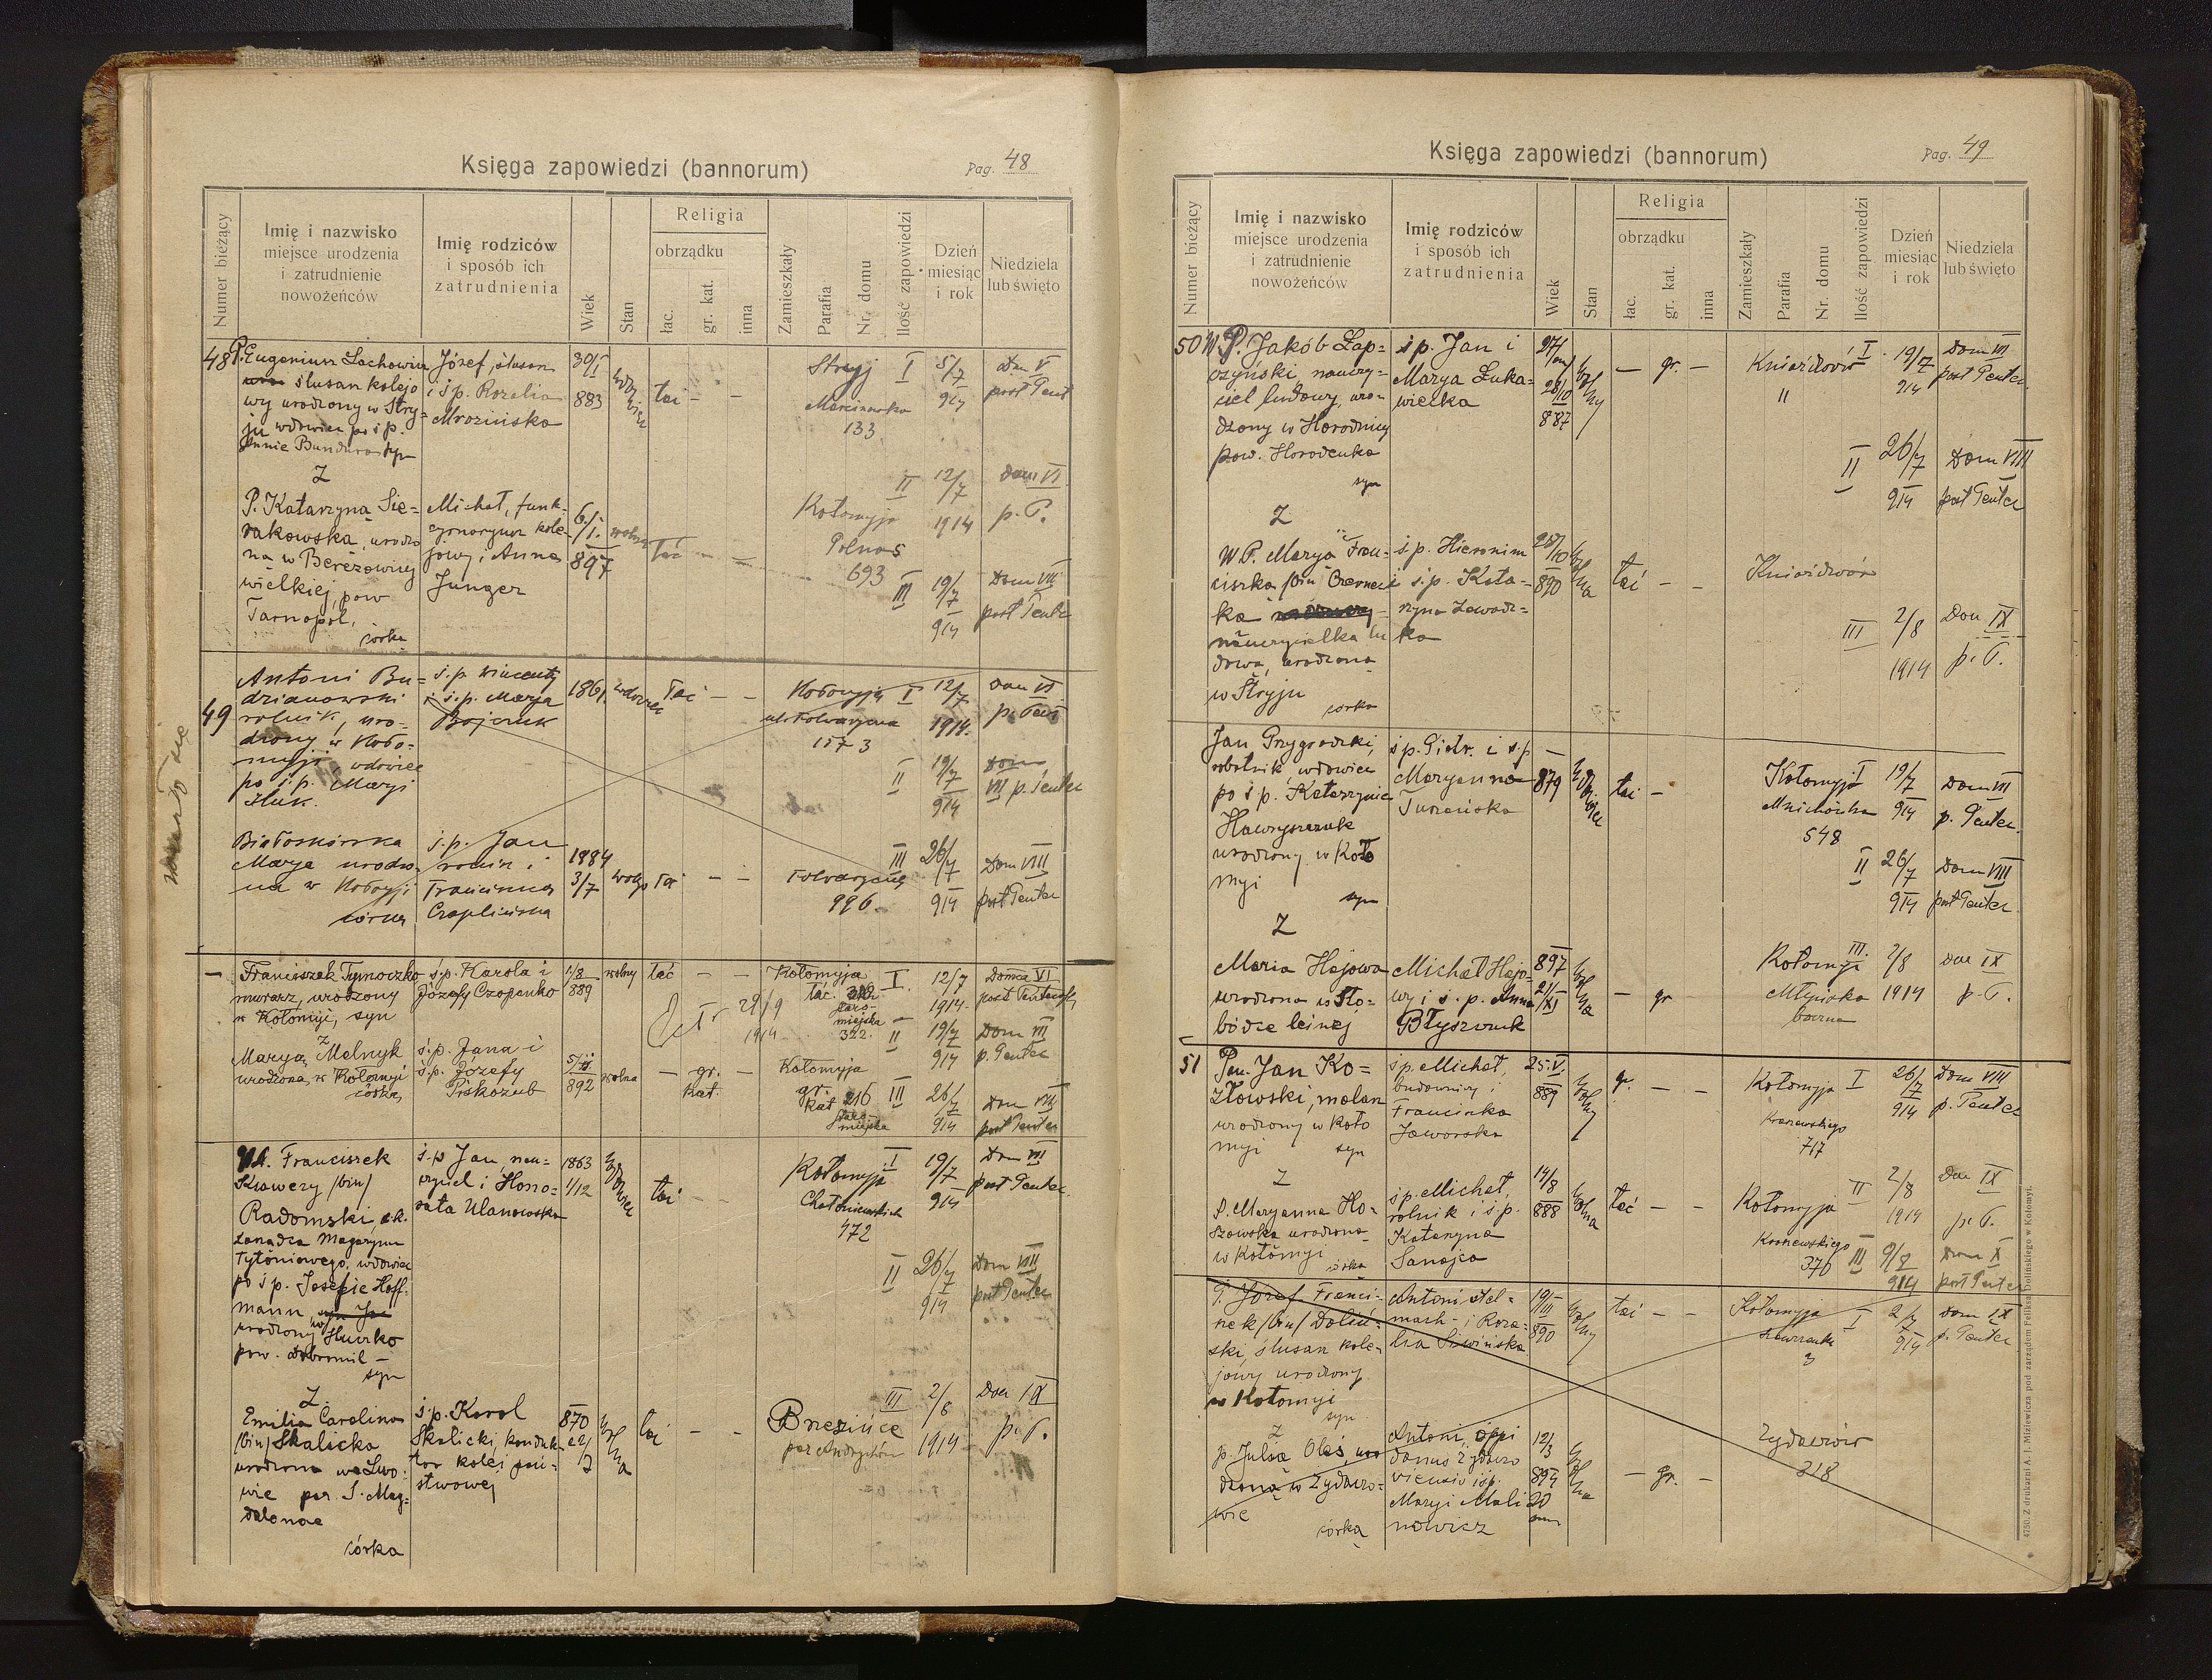 Księga zapowiedzi (bannorum)
Pag. 48
Numer bieżący
Imię i nazwisko
miejsce urodzenia
i zatrudnienie
nowożeńców
Imię rodziców
i sposób ich
zatrudnienia
Wiek
Stan
Religia
obrządku
łac.
gr. kat.
inna
Zamieszkały
Parafia
Nr. domu
Ilość zapowiedzi
Dzień
miesiąc
i rok
Niedziela
lub święto
48 P. Eugeniusz Lachowicz
ślusarz kolejo
wy urodzony w Stry=
ju wdowiec po ś p.
Annie syn
Józef, ślusarz
i ś p. Rozalia
Mrozińska
30/I
883
wdowiec
łać - -
Stryj I 5/7 Dom V
914 post Pent
133
II 12/7 Dom VI
1914 p. P.
Z
P. Katarzyna Sie=
rakowska, urodzo
na w Berezowicy
wielkiej, pow
Tarnopol,
córka
Michał, funk=
cyonaryusz kole=
jowy i Anna
Junger
6/I.
897
wolna
łać - -
Kołomyja
693
III 19/7 Dom VII
914 post Pente
49
Antoni Bu=
dzianowski
rolnik, uro=
dzony w Koło=
myji, wdowiec
po ś.p. Maryi
Huk.
ś.p. Wincenty
i ś.p. Marya
Bojczuk
1861.
wdowiec
łać - -
Kołomyja I 12/7 Dom VI
1914. p. Pent
1573
II 19/7 Dom
914 VII p. Pentec
Białoskórska
Marya urodzo=
na w Kołomyji
córka
ś.p. Jan
rolnik i
Franciszka
Czaplińska
1884
3/7
- -
996.
III 26/7 Dom VIII
914 post Pentec
zmarł
- Franciszek Tymoczko
murarz, urodzony
w Kołomyi, syn
ś.p. Karola i
Józefy Czopenko
1/8
889
wolny
łać - -
Kołomyja I. 12/7 Domca VI
łac.
staro-
miejska
322
1914. post Pentecosty
29/9
1914
II 19/7 Dom VII
914 p. Pentec
z
Marya Melnyk
urodzona w Kołomyi
córka
ś.p. Jana i
ś.p. Józefy
Piskozub
892
wolna
- gr. -
kat.
Kołomyja
gr.
kat 216
staro
miejska
III 26/7 Dom VIII
914 post Pentec
Franciszek
Ksawery (bin)
Radomski, c.k.
zarządca Magazynu
Tytoniowego, wdowiec
po ś p. Josefie Hoff=
mann
urodzony w Huczko
pow. Dobromil -
syn
ś.p Jan, nau=
czyciel i Hono=
rata Ulanowska
1863
1/12
wdowiec
łać - -
Kołomyja I 19/7 Dom VII
914 post Pentec.
472
II 26/7 Dom VIII
914 post Pentec
Z
Emilia Carolina
(bin) Skalicka
urodzona we Lwo=
wie par. S. Mag=
dalenae
córka
ś.p. Karol
Skalicki, konduk=
tor kolei pań=
stwowej
870
22/7
wolna
łać - -
III 2/8 Dom IX
par Andrychów 1914 p. P.
Księga zapowiedzi (bannorum)
Pag. 49
Numer bieżący
Imię i nazwisko
miejsce urodzenia
i zatrudnienie
nowożeńców
Imię rodziców
i sposób ich
zatrudnienia
Wiek
Stan
Religia
obrządku
łac.
gr. kat.
inna
Zamieszkały
Parafia
Nr. domu
Ilość zapowiedzi
Dzień
miesiąc
i rok
Niedziela
lub święto
50 W P. Jakób Łap=
czyński nauczy=
ciel ludowy, uro=
dzony w Horodnicy
pow. Horodenka
syn
ś p. Jan i
Marya Łuka=
wiecka
28/10
887
wolny
- gr. -
Kniaźdwór I 19/7 Dom VII
" 914 post Pentec
II 26/7 Dom VIII
914 post Pentec
Z
W P. Marya Fran=
ciszka (bin) Czernec
ka
nauczycielka lu
dowa, urodzona
w Stryju
córka
ś p. Hieronim
i ś p. Kata=
rzyna Zawadz=
ka
890
wolna
łać - -
Kniaźdwór
III 2/8 Dom IX
1914 p. P.
Jan Przygrodzki,
robotnik, wdowiec
po ś p. Katarzynie
Hawryszczuk
urodzony w Koło
myi
syn
ś p. Piotr i ś p
Maryanna
Turańska
-
879
wdowiec
łać -
Kołomyja I 19/7 Dom VII
Mnichówka 914 p. Pentec.
548
II 26/7 Dom VIII
914 post Pentec.
Z
Maria Hajowa
urodzona w Sło=
bódce leśnej
Michał Hajo=
wy i ś. p. Anna
Błyszczuk
897
21/XI
wolna
- gr -
Kołomyi III. 2/8 Dom IX
Młyńska 1914 p. P.
boczna
51 Pan Jan Ko=
złowski, malarz
urodzony w Koło
myi syn
ś p. Michał,
budowniczy i
Franciszka
Jaworska
25.V.
889
wolny
gr. - -
Kołomyja I 26/7 Dom VIII
914 p. Pentec
Kraszewskiego
717
Z
P. Maryanna Ho=
szowska urodzona
w Kołomyi córka
ś p. Michał,
rolnik i ś p.
Katarzyna
Sanojca
14/8
888
wolna
łać - -
Kołomyja II 2/8 Dom IX
1914 p. P.
Kraszewskiego
376 III 9/8 Dom X
914 post Pentec
P. Józef Franci=
szek (bin) Doliń=
ski, ślusarz kole=
jowy urodzony
w Kołomyi
syn
Antoni stel=
mach i Roza=
lia Siwińska
19/III
890
wolny
łać - -
Kołomyja I Dom IX
3 914 p. Pentec
Z
p. Julia Oleś, uro
dzona w Żydaczo=
wie
córka
Antoni, oppi
danus Żydaczo
viensis i ś p.
Maryi Mali
nowicz
12/3
894
20
ann
wolna
- gr. -
Żydaczów
318
4750. Z drukarni A. J. Miziewicza pod zarządem Feliksa Dolińskiego w Kołomyi.